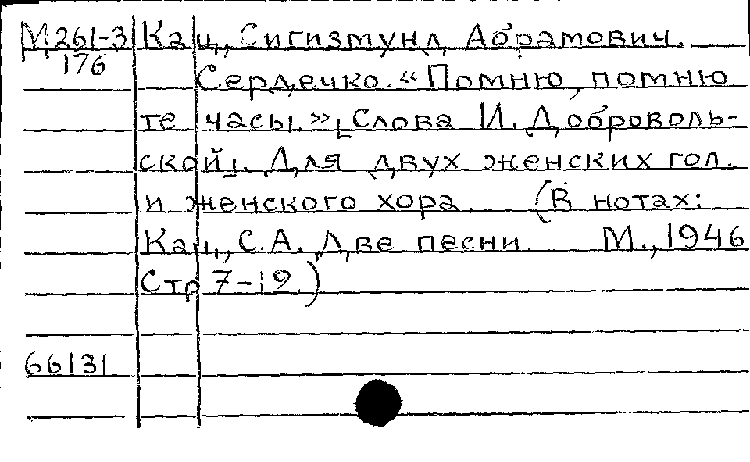 М261-3 Кац, Сигизмунд Абрамович.
176 Сердечко. «Помню, помню
те часы.» [Слова И. Доброволь-
ской]. Для двух женских гол.
и женского хора. (В нотах:
Кац, С.А. Две песни. М., 1946
Стр 7-12.)
66131